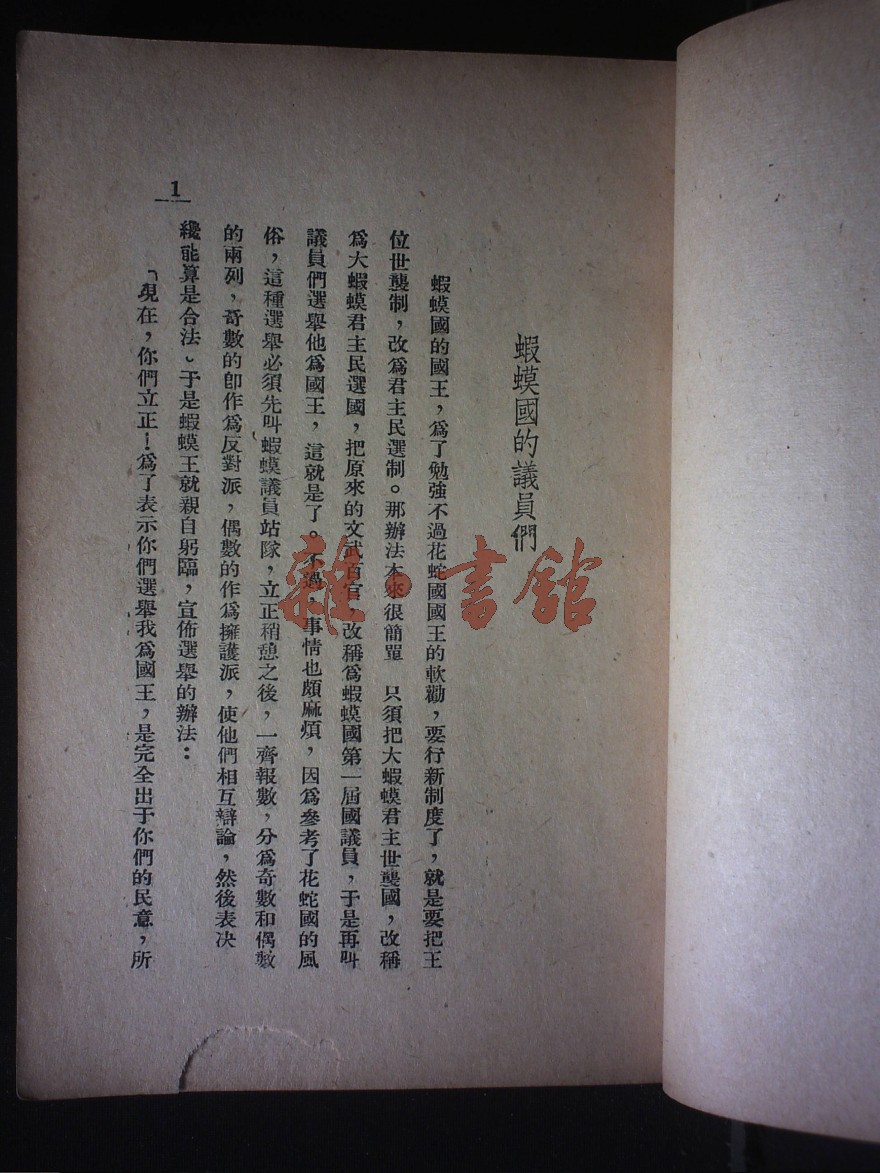 蝦蟆國的議員們
蝦蟆國的國王，爲了勉強不過花蛇國國王的軟勸，要行新制度了，就是要把王
位世襲制，改爲君主民選制。那辦法本來很簡單　只須把大蝦蟆君主世襲國，改稱
爲大蝦蟆君主民選國，把原來的文武百官，改稱爲蝦蟆國第一屆國議員，于是再叫
議員們選舉他爲國王，這就是了。不過，事情也頗麻煩，因爲參考了花蛇國的風
俗，這種選舉必須先叫蝦蟆議員站隊，立正稍憩之後，一齊報數，分爲奇數和偶數
的兩列，奇數的卽作爲反對派，偶數的作爲擁護派，使他們相互辯論，然後表决
纔能算是合法。于是蝦蟆王就親自躬臨，宣佈選舉的辦法：
「現在，你們立正！爲了表示你們選舉我爲國王，是完全出于你們的民意，所
1
雜·書館